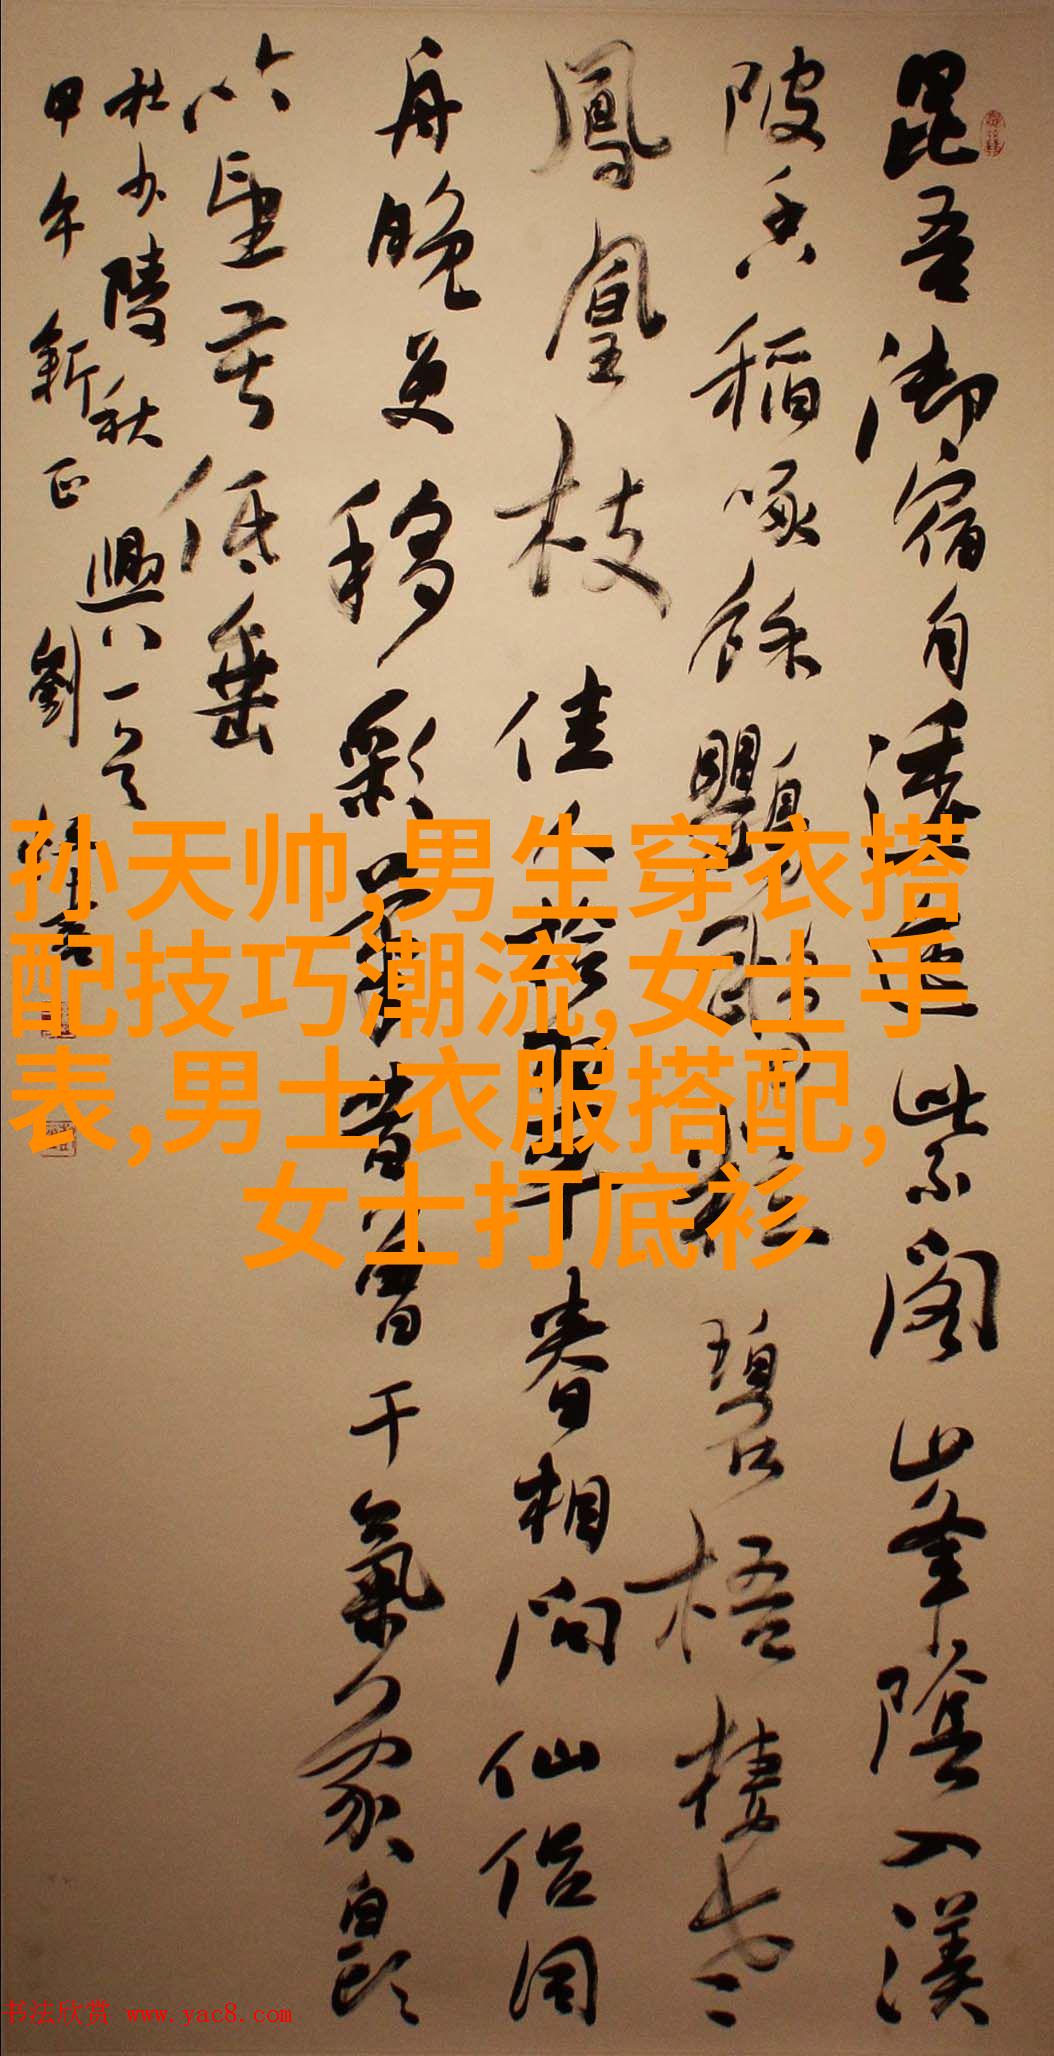 昆吾御宿自逶迤紫閣山峯陰入渼
陂香稻啄餘鸚鵡粒碧梧棲老
鳳凰枝佳人拾翠春相問仙侶同
舟晚更移彩筆昔曾干氣象白頭
吟望苦低垂
杜少陵秋興八
甲午新正劉
孙天帅,男生穿衣搭
配技巧潮流,女士手
表,男士衣服搭配,
女士打底衫
书法欣赏 www.yac8.com